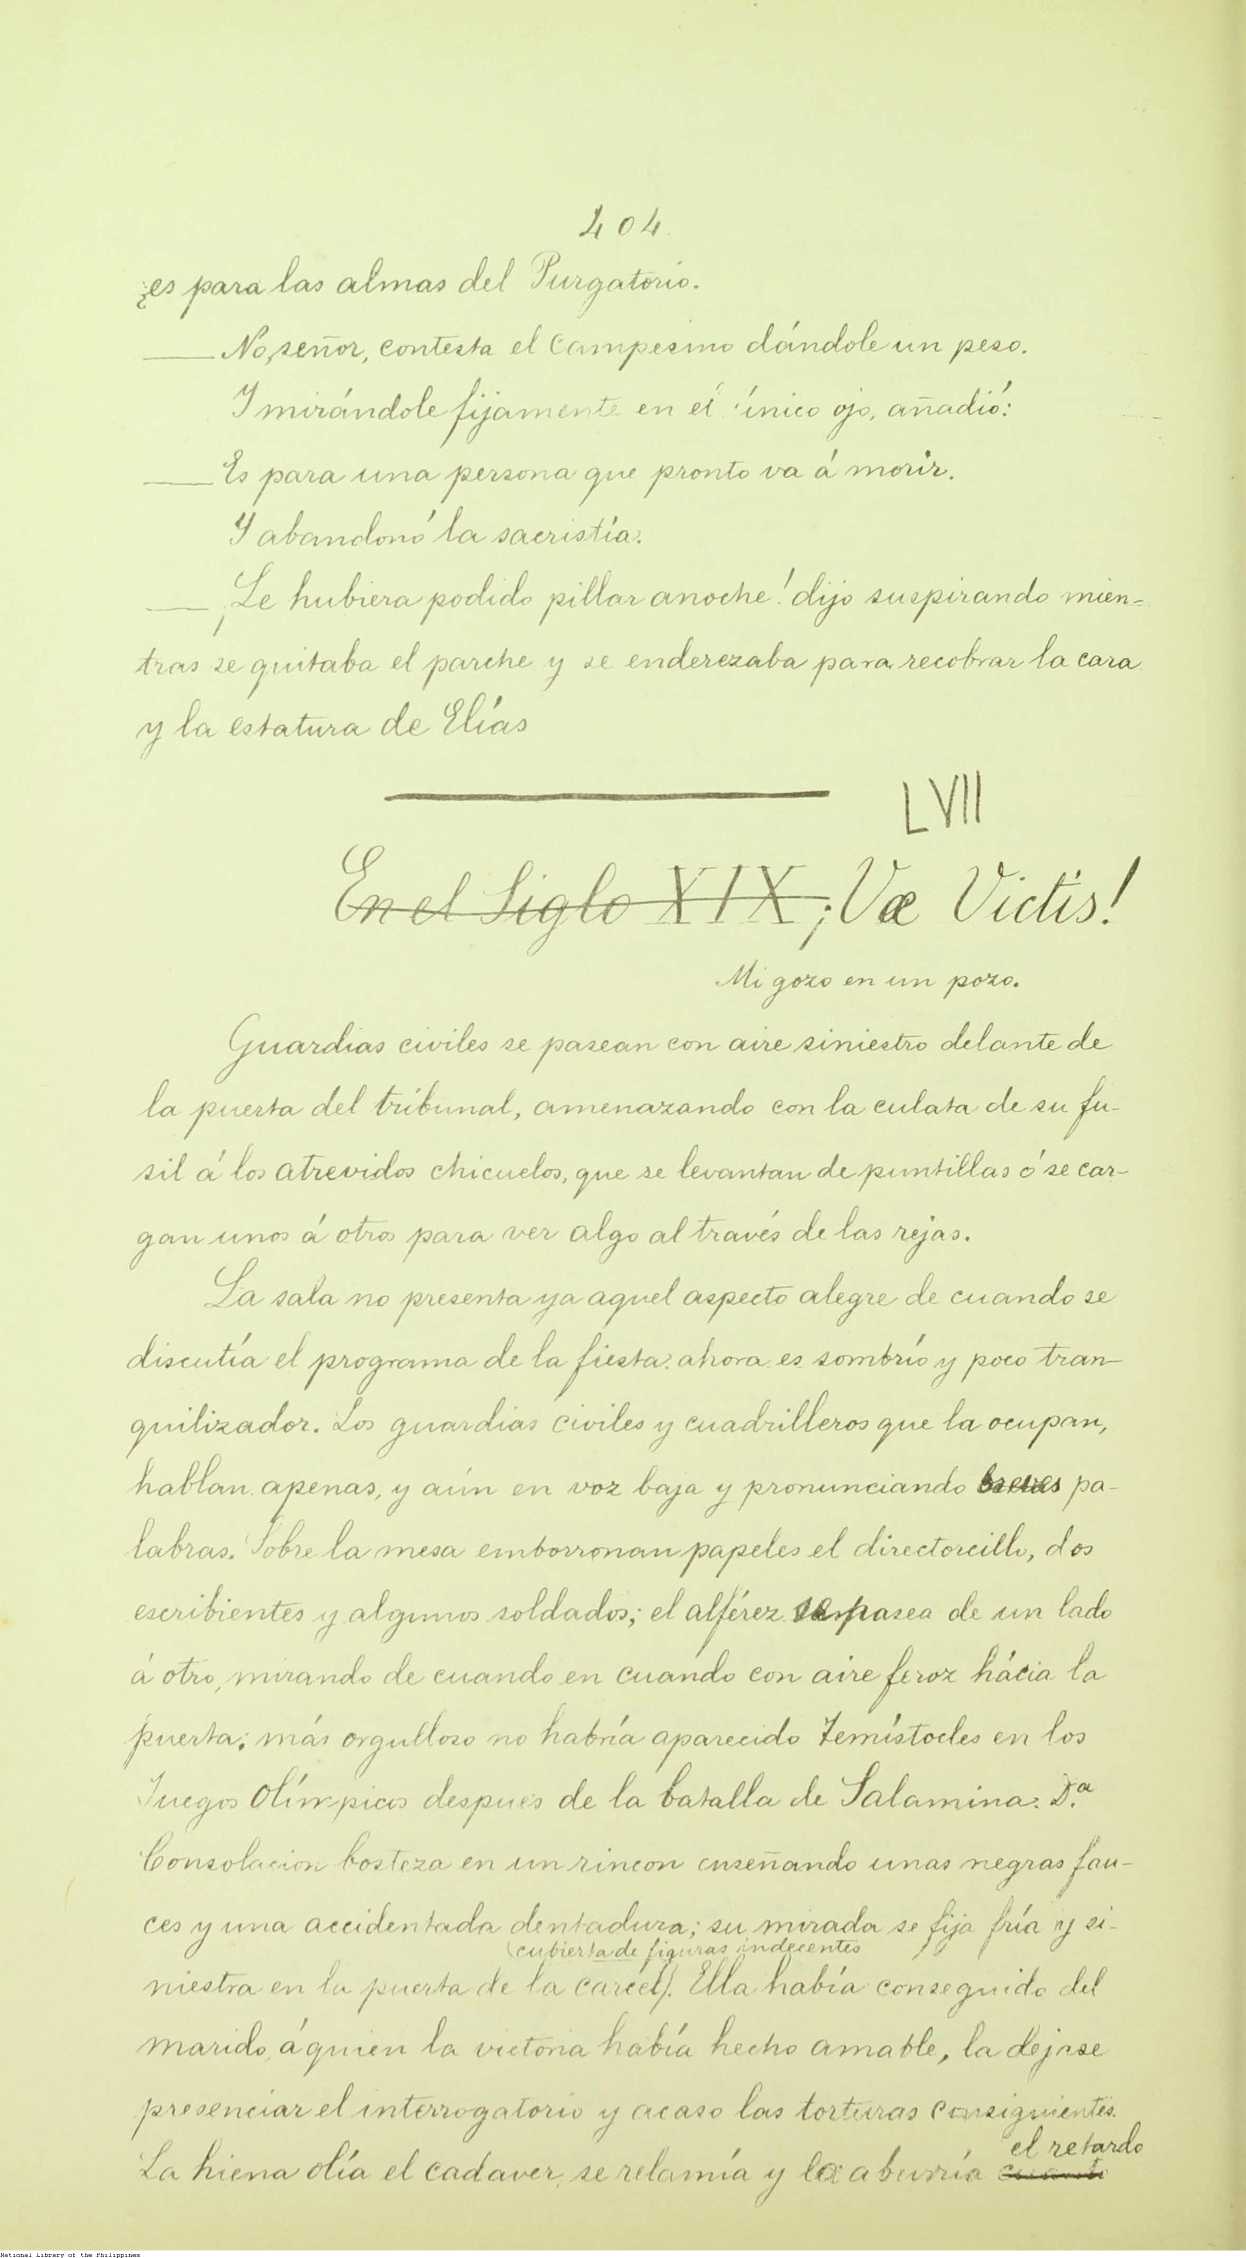 404.
¿es para las almas del Purgatorio.
— No, señor, contesta el campesino dándole un peso.
Y mirándole fijamente en el único ojo, añadió:
— Es para una persona que pronto va á morir.
Y abandonó la sacristía.
— ¡Le hubiera podido pillar anoche! dijo suspirando mien-
tras se quitaba el parche y se enderezaba para recobrar la cara
y la estatura de Elías
LVII
En el Siglo XIX ¡Væ Victis!
Mi gozo en un pozo.
Guardias civiles se pasean con aire siniestro delante de
la puerta del tribunal, amenazando con la culata de su fu-
sil á los atrevidos chicuelos, que se levantan de puntillas ó se car-
gan unos á otros para ver algo al través de las rejas.
La sala no presenta ya aquel aspecto alegre de cuando se
discutía el programa de la fiesta: ahora es sombrío y poco tran-
quilizador. Los guardias civiles y cuadrilleros que la ocupan,
hablan apenas, y aún en voz baja y pronunciando breves pa-
labras. Sobre la mesa emborronan papeles el directorcillo, dos
escribientes y algunos soldados; el alférez se pasea de un lado
á otro, mirando de cuando en cuando con aire feroz hácia la
puerta; más orgulloso no habría aparecido Temístocles en los
Juegos Olímpicos después de la batalla de Salamina. D.ª
Consolacion bosteza en un rincon enseñando unas negras fau-
ces y una accidentada dentadura; su mirada se fija fría y si-
(cubierta de figuras indecentes
niestra en la puerta de la carcel). Ella había conseguido del
marido, á quien la victoria había hecho amable, la dejase
presenciar el interrogatorio y acaso las torturas consiguientes.
el retardo
La hiena olía el cadaver, se relamía y la aburría cuanto
National Library of the Philippines